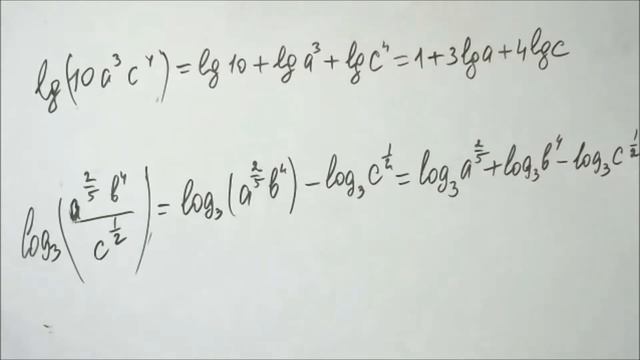 lg(10a³c⁴) = lg 10 + lg a³ + lg c⁴ = 1 + 3 lg a + 4 lg c
log₃(a^(2/5) b⁴ / c^(1/2)) = log₃(a^(2/5) b⁴) - log₃ c^(1/2) = log₃ a^(2/5) + log₃ b⁴ - log₃ c^(1/2)